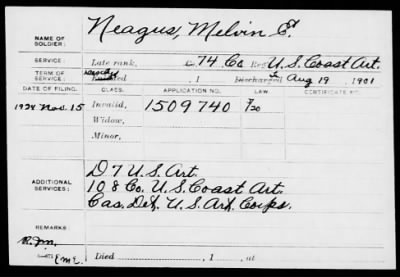 NAME OF SOLDIER: Neagus, Melvin E.
SERVICE: Late rank, 74 Co Reg U.S. Coast Art.
TERM OF SERVICE: Enlisted , 1 Discharged Aug 19, 1901
DATE OF FILING. CLASS. APPLICATION NO. LAW. CERTIFICATE NO.
1924 Nov. 15 Invalid, 1509740
Widow,
Minor,
ADDITIONAL SERVICES: D 7 U.S. Art.
108 Co. U.S. Coast Art.
Cas. Det. U.S. Art. Corps.
REMARKS:
Died , 1 , at